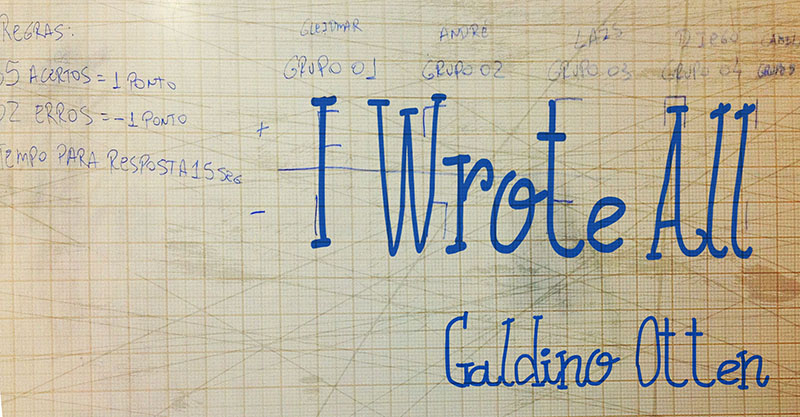 REGRAS:
GLEIDMAR ANDRÉ LAIS DIEGO
GRUPO 01 GRUPO 02 GRUPO 03 GRUPO 04
5 ACERTOS = 1 PONTO
02 ERROS = -1 PONTO
EMPO PARA RESPOSTA 15 SEG
+
-
I Wrote All
Galdino Otten